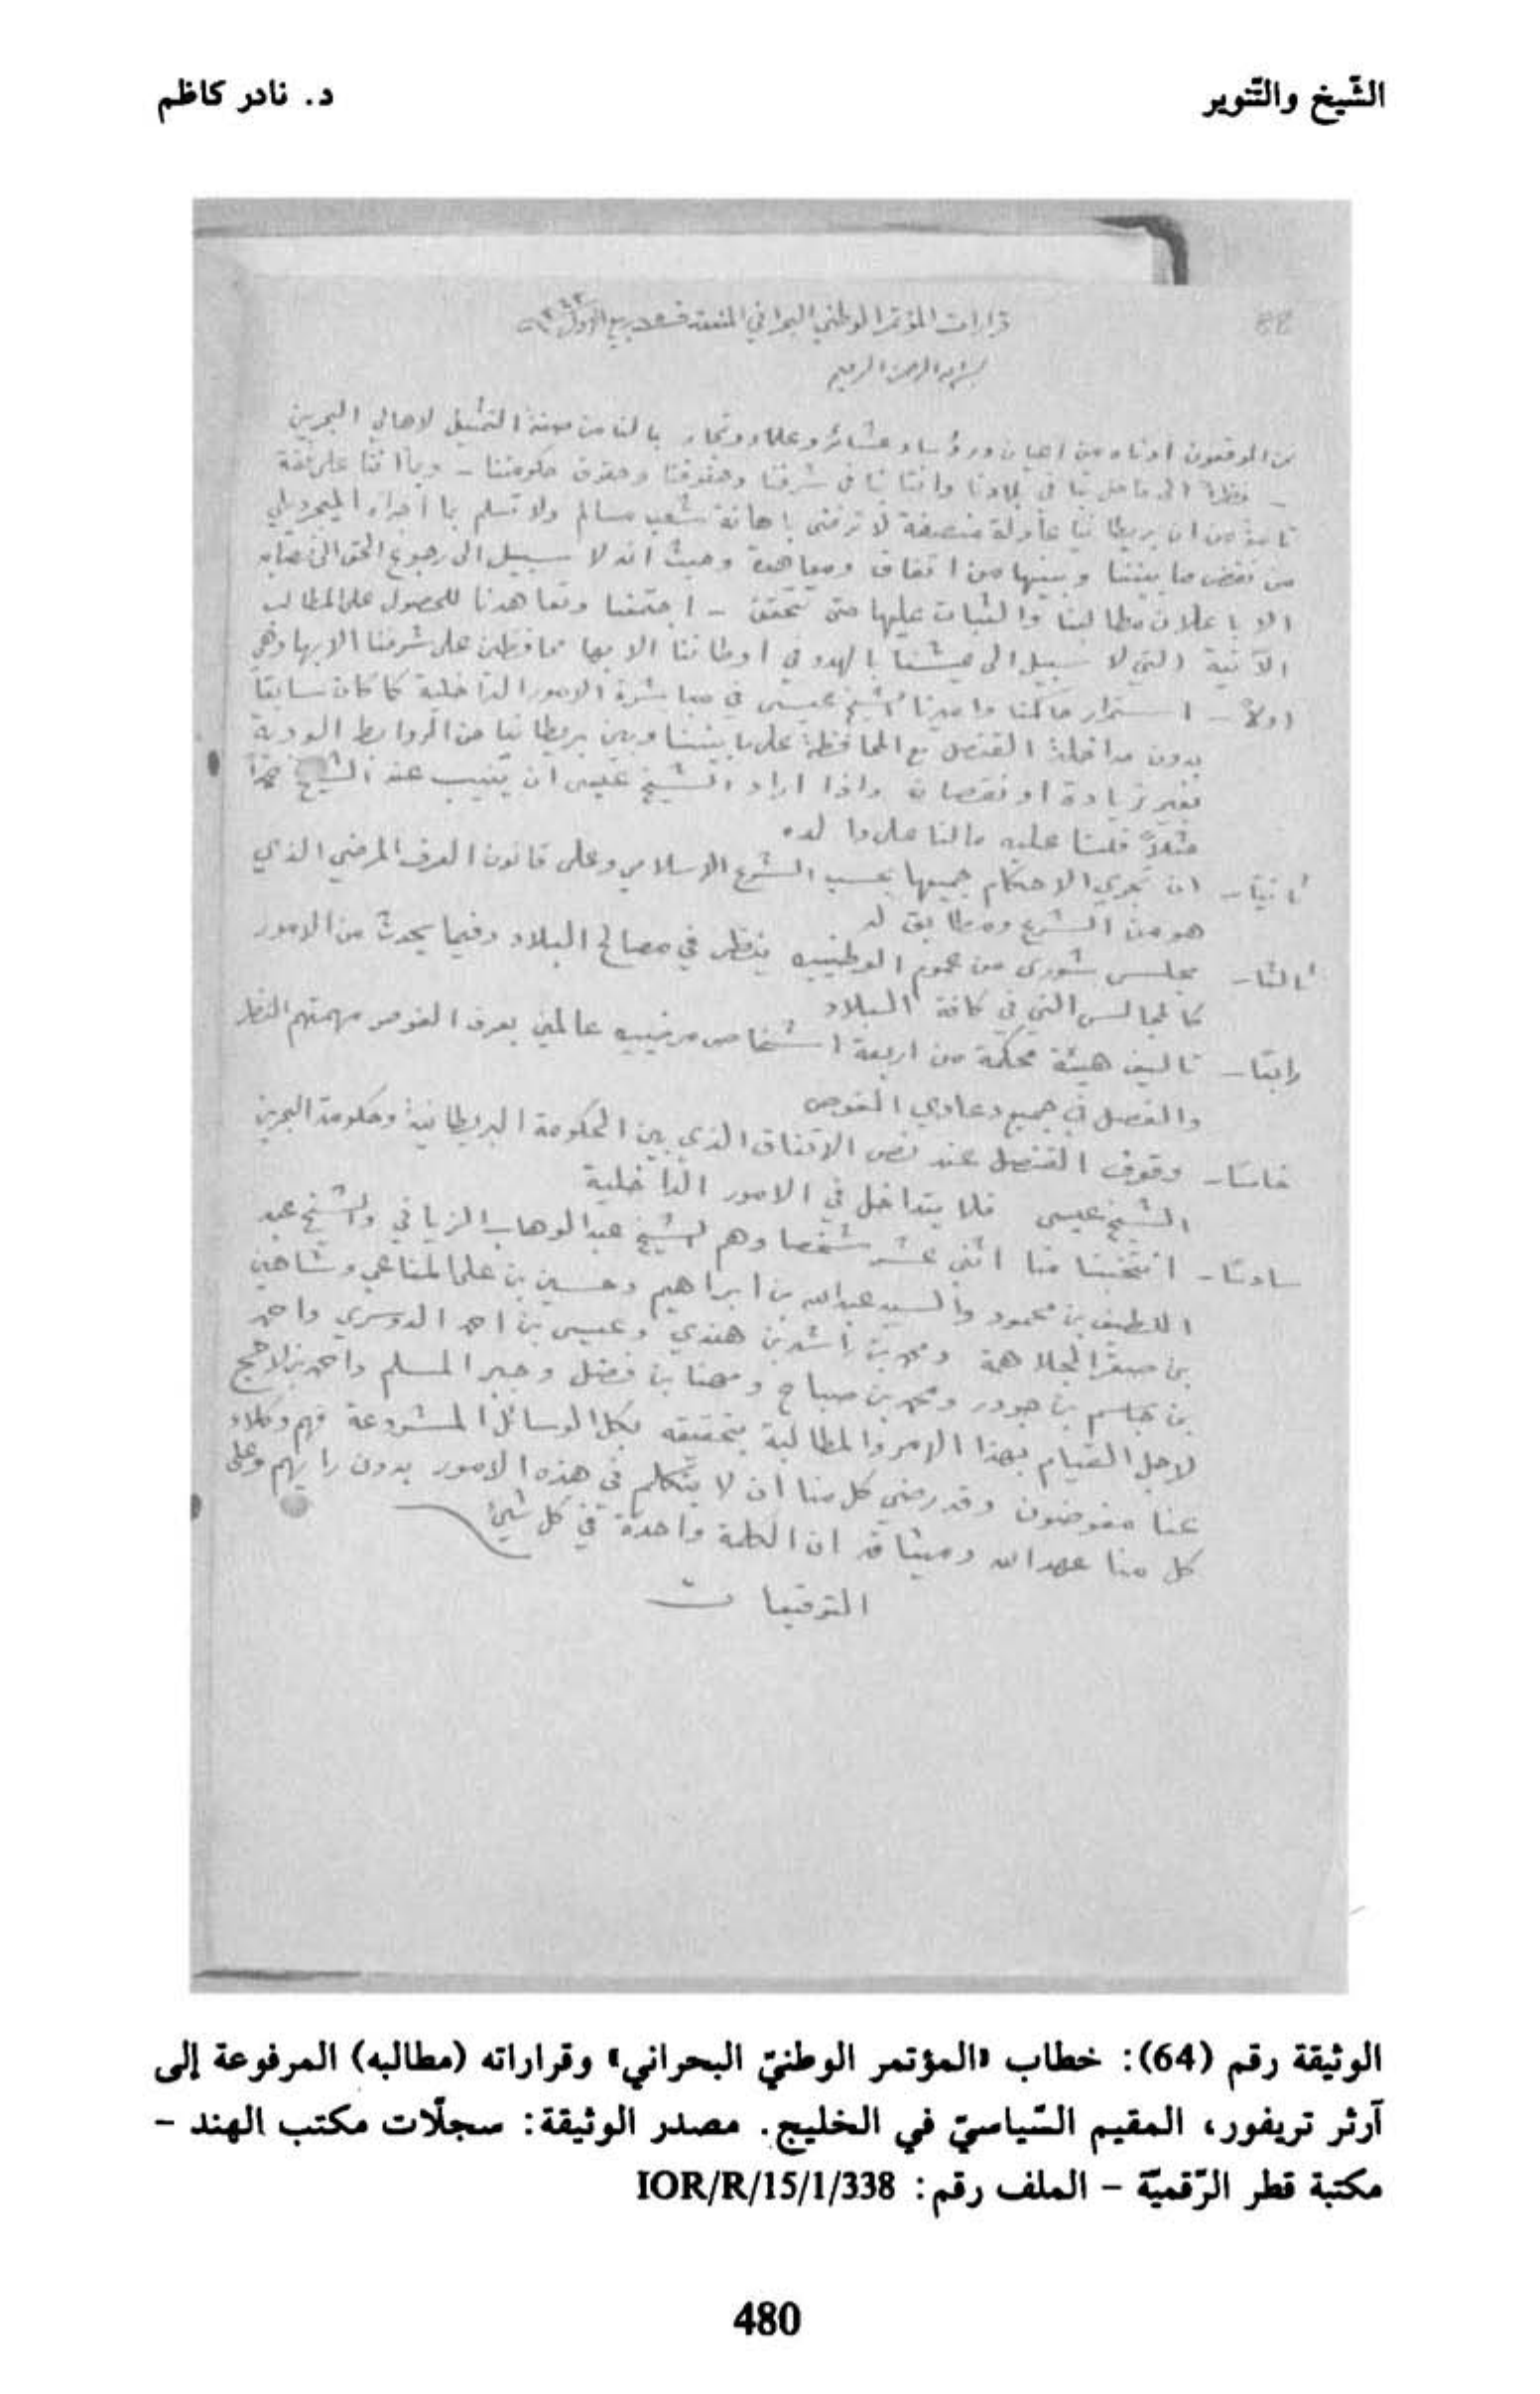 الشّيخ والتّنوير
د. نادر كاظم
قرارات المؤتمر الوطني البحراني المنعقد في ربيع الاول
بسم الله الرحمن الرحيم
نحن الموقعون ادناه من اعيان ورؤساء عشائر وعلماء وتجار بالنا من صفة التمثيل لاهالي البحرين
- نظراً الى ما حل بنا في بلادنا وافتأتنا في شرفنا وحقوقنا وحقوق حكومتنا - وبما اننا على ثقة
تامة من ان بريطانيا عادلة منصفة لا ترضى باهانة شعب مسالم ولا تسلم بما أجراه الميجر ديلي
من نقض ما بيننا وبينها من اتفاق ومعاهدة وحيث انه لا سبيل الى رجوع الحق الى نصابه
الا باعلان مطالبنا والثبات عليها حتى تحقق - اجتمعنا وتعاهدنا للحصول على المطالب
الآتية التي لا سبيل الى عيشنا بالهدو في اوطاننا الا بها محافظين على شرفنا الا بها وهي
اولاً - استمرار حاكمنا واميرنا الشيخ عيسى في مباشرة الامور الداخلية كما كان سابقاً
بدون مداخلة القنصل مع المحافظة على ما بيننا وبين بريطانيا من الروابط الودية
بغير زيادة او نقصان واذا اراد الشيخ عيسى ان ينيب عنه الشيخ حمداً
مثلاً فلنا عليه مالنا على والده
ثانيا - ان تجري الاحكام جميعها بحسب الشرع الاسلامي وعلى قانون العرف المرضي الذي
هو من الشرع ومطابق له
ثالثا - مجلس شورى من عموم الوطنيين ينظر في مصالح البلاد وفيما يحدث من الامور
كالمجالس التي في كافة البلاد
رابعا - تاليف هيئة محكمة من اربعة اشخاص مرضيين عالمين بعرف الغوص مهمتهم النظر
والفصل في جميع دعاوي الغوص
خامسا - وقوف القنصل عند نص الاتفاق الذي بين الحكومة البريطانية وحكومة البحرين
الشيخ عيسى فلا يتداخل في الامور الداخلية
سادسا - انتخبنا منا اثني عشر شخصا وهم الشيخ عبد الوهاب الزياني والشيخ عبد
اللطيف بن محمود والسيد عبدالله بن ابراهيم وحسين بن علي المناعي وشاهين
بن صقر الجلاهمة ومحمد بن راشد بن هندي وعيسى بن احمد الدوسري واحمد
بن جاسم بن جودر ومحمد بن صباح ومهنا بن فضل وجبر المسلم واحمد بن لاحج
لاجل القيام بهذا الامر والمطالبة بتحقيقه بكل الوسائل المشروعة فهم وكلاء
عنا مفوضون وقد رضي كل منا ان لا يتكلم في هذه الامور بدون رايهم وعلى
كل منا عهد الله وميثاقه ان الكلمة واحدة في كل شيئ
التوقيعات
الوثيقة رقم (64): خطاب «المؤتمر الوطنيّ البحراني» وقراراته (مطالبه) المرفوعة إلى
آرثر تريفور، المقيم السّياسيّ في الخليج. مصدر الوثيقة: سجلّات مكتب الهند -
مكتبة قطر الرّقميّة - الملف رقم: IOR/R/15/1/338
480